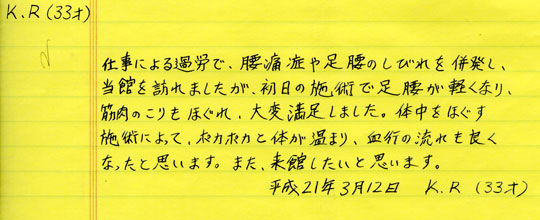 K.R (33才)
仕事による過労で、腰痛症や足腰のしびれを併発し、
当館を訪れましたが、初日の施術で足腰が軽くなり、
筋肉のこりもほぐれ、大変満足しました。体中をほぐす
施術によって、ホカホカと体が温まり、血行の流れも良く
なったと思います。また、来館したいと思います。
平成21年3月12日 K.R (33才)